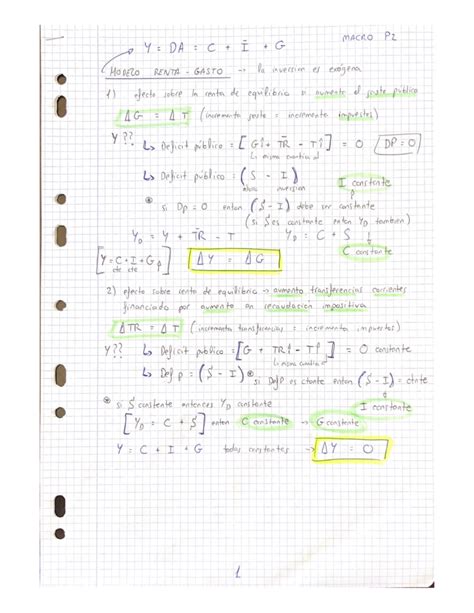 MACRO P2
Y = DA = C + Ī + G
MODELO RENTA - GASTO → la inversion es exógena
1) efecto sobre la renta de equilibrio si aumento el gasto público
ΔG = ΔT (incremento gasto = incremento impuestos)
Y?? ↳ Deficit público = [G↑ + TR - T↑] = 0 DP = 0
la misma cuantia
↳ Deficit público = (S - I) I constante
ahorro inversion
⊛ si DP = 0 enton (S - I) debe ser constante
(si S es constante enton YD tambien)
YD = Y + TR - T YD = C + S
C constante
[Y = C + I + G] ΔY = ΔG
cte cte
2) efecto sobre renta de equilibrio → aumento transferencias corrientes
financiado por aumento en recaudación impositiva
ΔTR = ΔT (incremento transferencias = incremento impuestos)
Y?? ↳ Deficit público = [G + TR↑ - T↑] = 0 constante
la misma cuantia
↳ Def p = (S - I) ⊛ si Def P es ctante enton (S - I) = ctnte
I constante
⊛ si S constante entonces YD constante
[YD = C + S] enton C constante → G constante
Y = C + I + G todas constantes → ΔY = 0
1